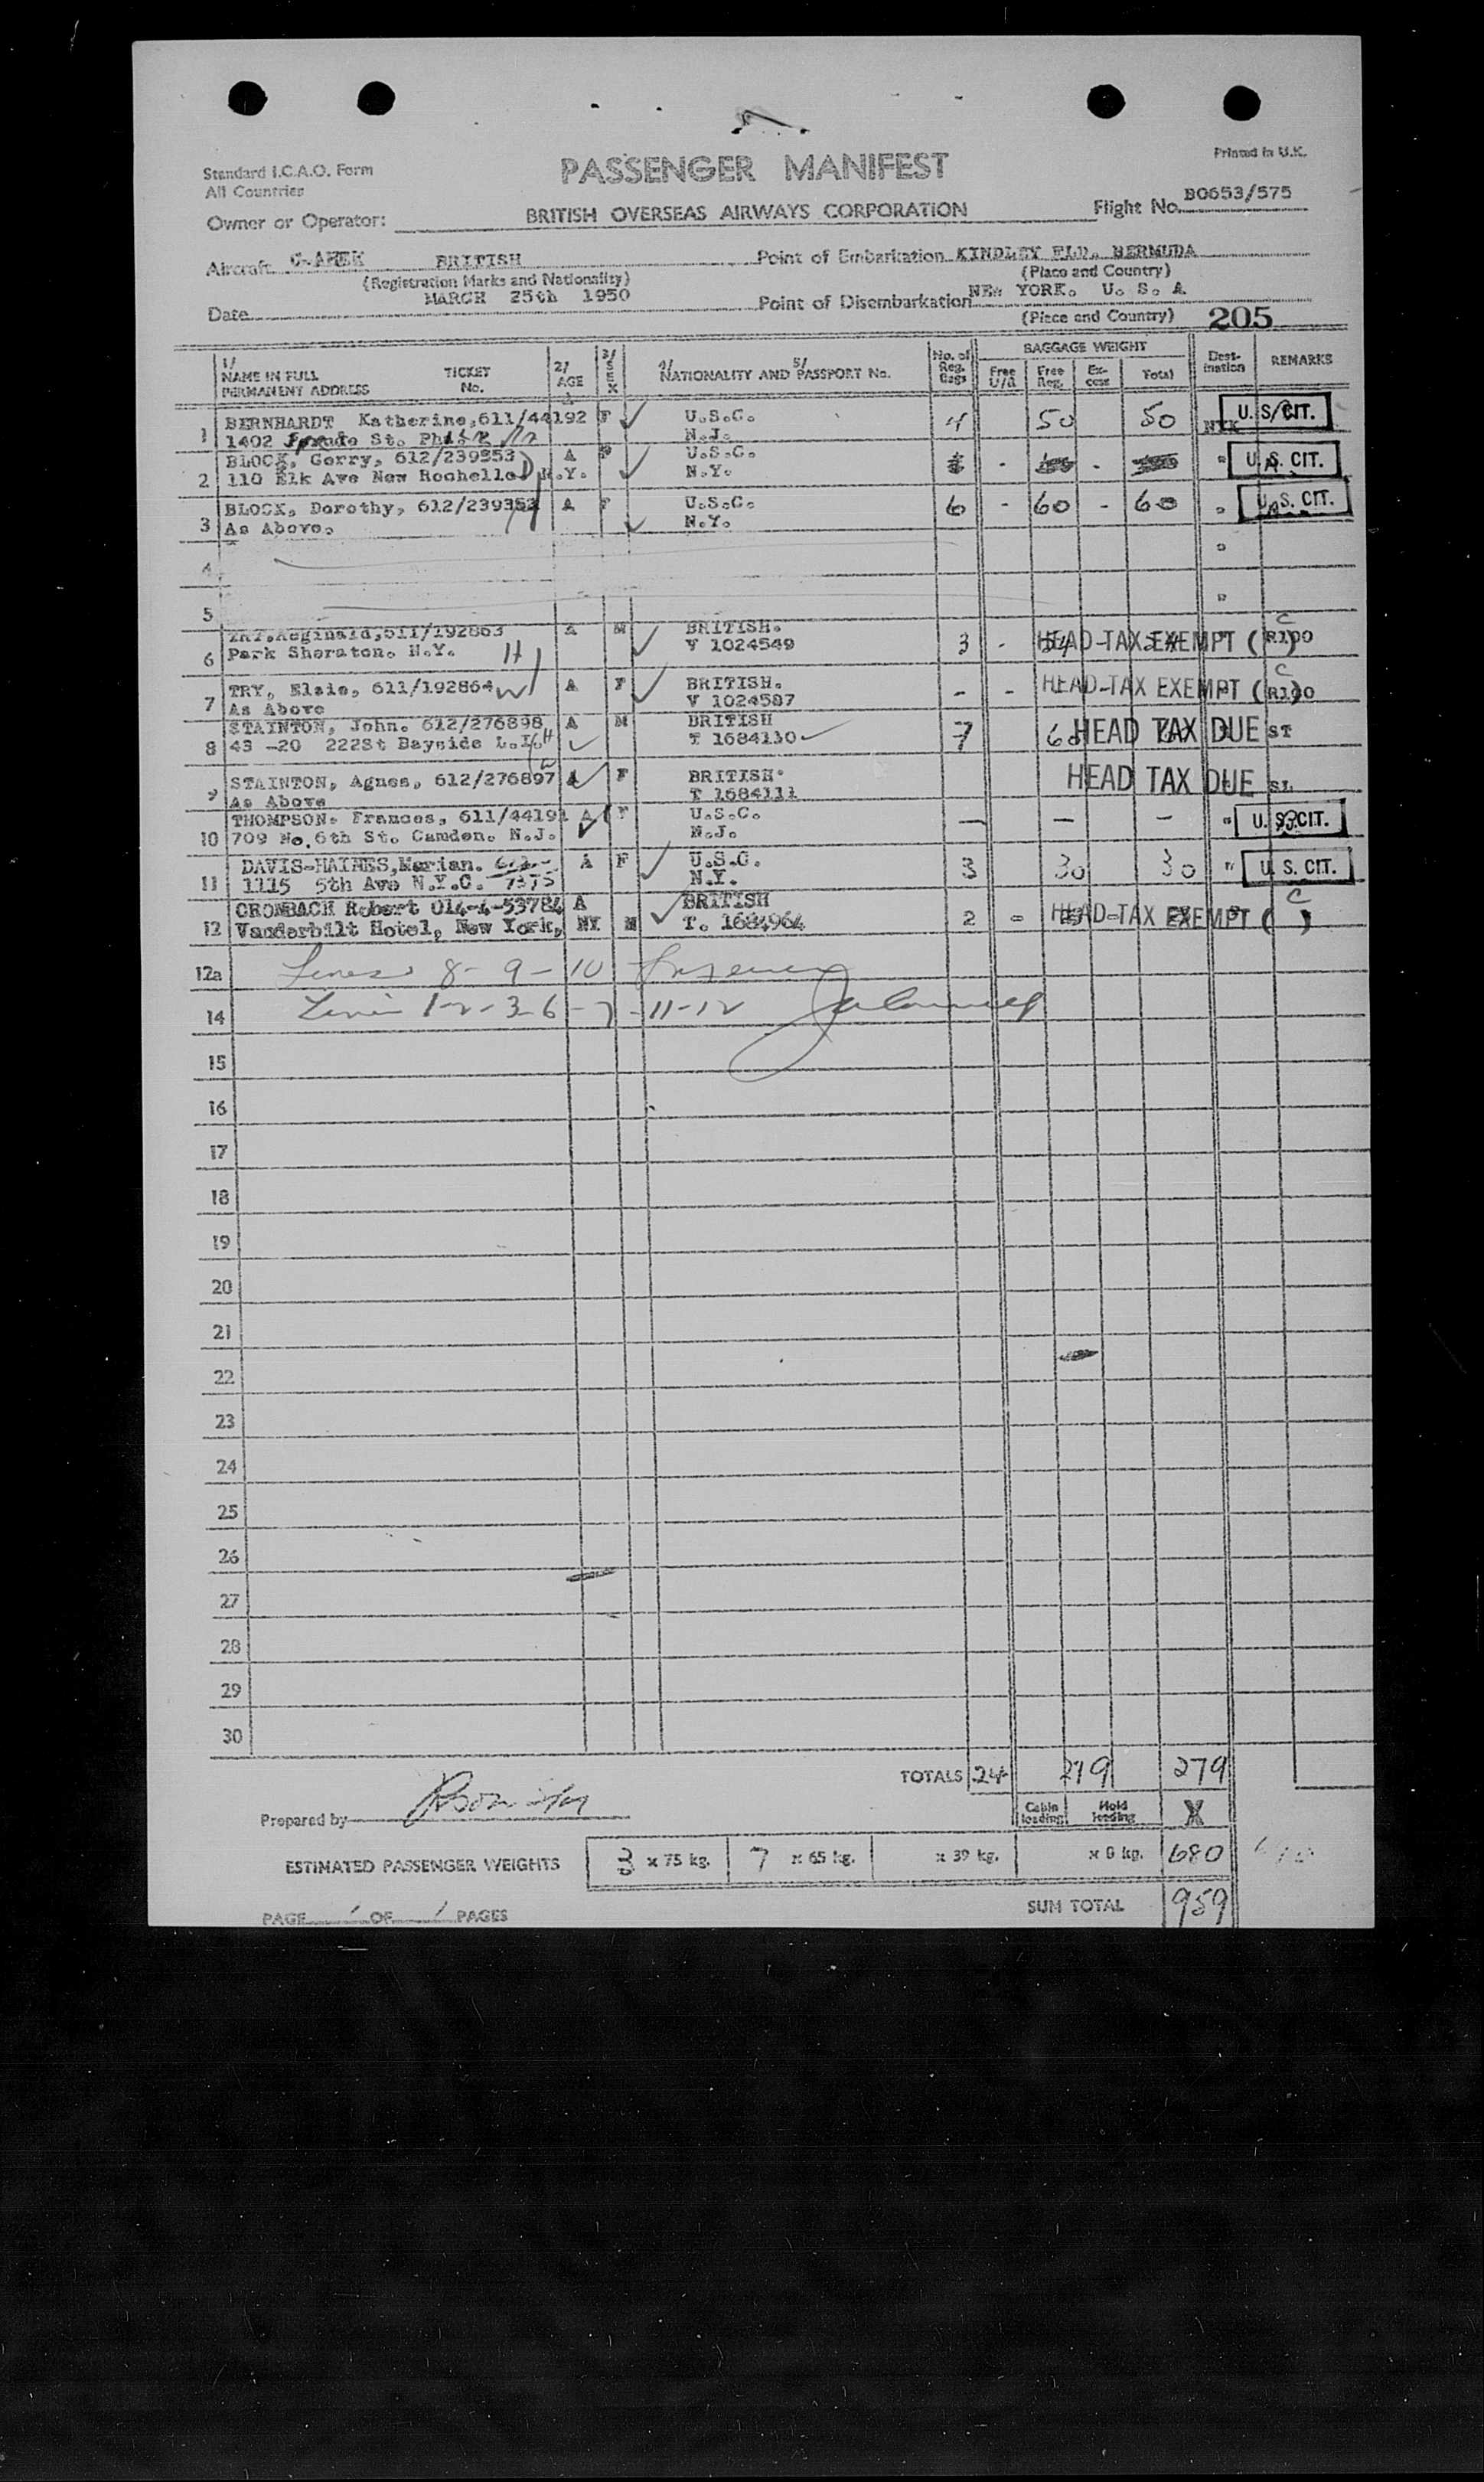 Standard I.C.A.O. Form
All Countries
PASSENGER MANIFEST
Printed in U.K.
Owner or Operator: BRITISH OVERSEAS AIRWAYS CORPORATION Flight No. BO653/575
Aircraft BRITISH Point of Embarkation KINDLEY FLD. BERMUDA
(Registration Marks and Nationality) (Place and Country)
Date MARCH 25th 1950 Point of Disembarkation NEW YORK. U. S. A
(Place and Country) 205
1/ NAME IN FULL PERMANENT ADDRESS TICKET No. 2/ AGE 3/ SEX 4/ NATIONALITY AND 5/ PASSPORT No. No. of Reg. Bags BAGGAGE WEIGHT Free U/A Free Reg. Ex-cess Total Dest-ination REMARKS
1 BERNHARDT Katherine, 611/44192 F ✓ U.S.C. 4 50 50 NYK U.S. CIT.
1402 St. N.J.
2 BLOCK, Gerry, 612/239353 A F ✓ U.S.C. - - " U.S. CIT.
110 Elk Ave New Rochelle N.Y. N.Y.
3 BLOCK, Dorothy, 612/239353 A F U.S.C. 6 - 60 - 60 " U.S. CIT.
As Above. ✓ N.Y.
4 "
5 "
6 TRY, Reginald, 611/192863 A M ✓ BRITISH. 3 - HEAD-TAX EXEMPT ( ) C
Park Sheraton. N.Y. H V 1024549
7 TRY, Elsie, 611/192864 W A F ✓ BRITISH. - - HEAD-TAX EXEMPT ( ) C
As Above V 1024587
8 STAINTON, John. 612/276898 A M BRITISH 7 HEAD TAX DUE ST
43 -20 222St Bayside L.I. H ✓ T 1684110 ✓
9 STAINTON, Agnes, 612/276897 A ✓ F BRITISH HEAD TAX DUE SL
As Above T 1684111
10 THOMPSON. Frances, 611/44191 A F U.S.C. — — — " U.S. CIT.
709 No. 6th St. Camden. N.J. ✓ N.J.
11 DAVIS-HAIMES, Marian. 612- A F ✓ U.S.C. 3 30 30 " U.S. CIT.
1115 5th Ave N.Y.C. 7375 N.Y.
12 CROMBACH Robert 014-4-53784 A BRITISH 2 - HEAD-TAX EXEMPT ( ) C
Vanderbilt Hotel, New York, NY M ✓ T. 1684964
12a Lines 8 - 9 - 10
14 Lines 1-2-3-6-7-11-12
15
16
17
18
19
20
21
22
23
24
25
26
27
28
29
30
TOTALS 24 279 279
Prepared by
Cabin loading Hold loading X
ESTIMATED PASSENGER WEIGHTS 3 x 75 kg. 7 x 65 kg. x 39 kg. x 8 kg. 680
SUM TOTAL 959
PAGE 1 OF 1 PAGES